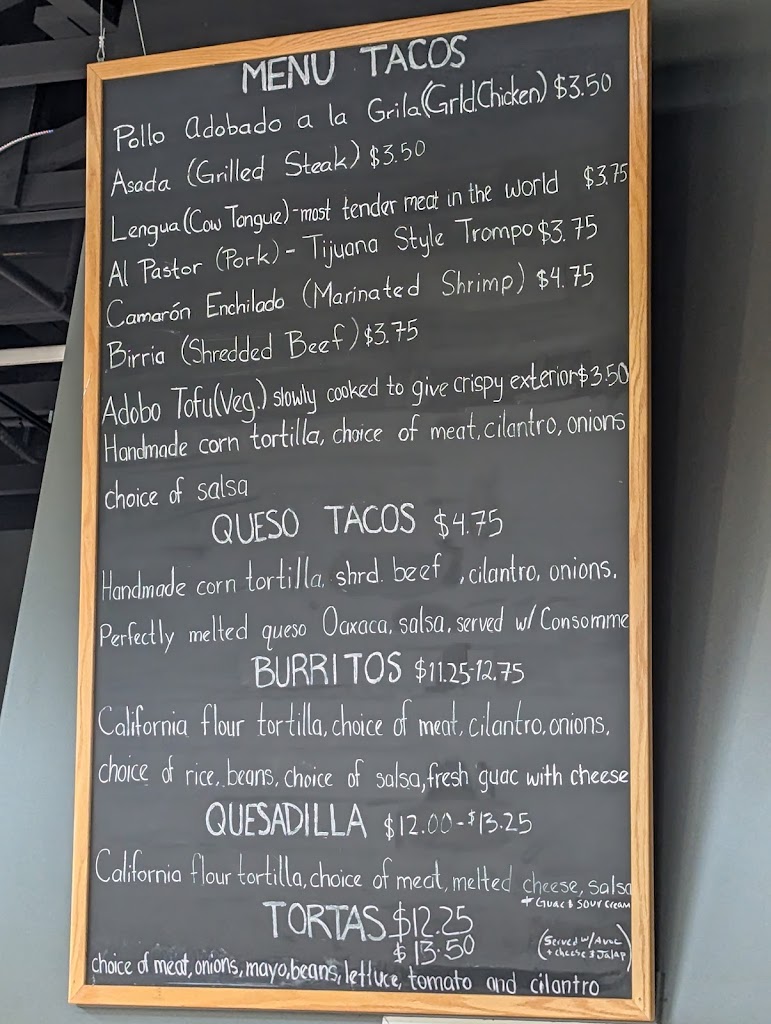 MENU TACOS
Pollo Adobado a la Grila(Grld.Chicken) $3.50
Asada (Grilled Steak) $3.50
Lengua(Cow Tongue)-most tender meat in the world $3.75
Al Pastor (Pork) - Tijuana Style Trompo $3.75
Camarón Enchilado (Marinated Shrimp) $4.75
Birria (Shredded Beef) $3.75
Adobo Tofu(Veg.) slowly cooked to give crispy exterior $3.50
Handmade corn tortilla, choice of meat, cilantro, onions
choice of salsa
QUESO TACOS $4.75
Handmade corn tortilla, shrd. beef , cilantro, onions.
Perfectly melted queso Oaxaca, salsa, served w/ Consomme
BURRITOS $11.25-12.75
California flour tortilla, choice of meat, cilantro, onions,
choice of rice, beans, choice of salsa, fresh guac with cheese
QUESADILLA $12.00-$13.25
California flour tortilla, choice of meat, melted cheese, salsa
+ Guac & Sour Cream
TORTAS $12.25
$13.50
(Served w/ Avoc
+ cheese & Jalap)
choice of meat, onions, mayo, beans, lettuce, tomato and cilantro